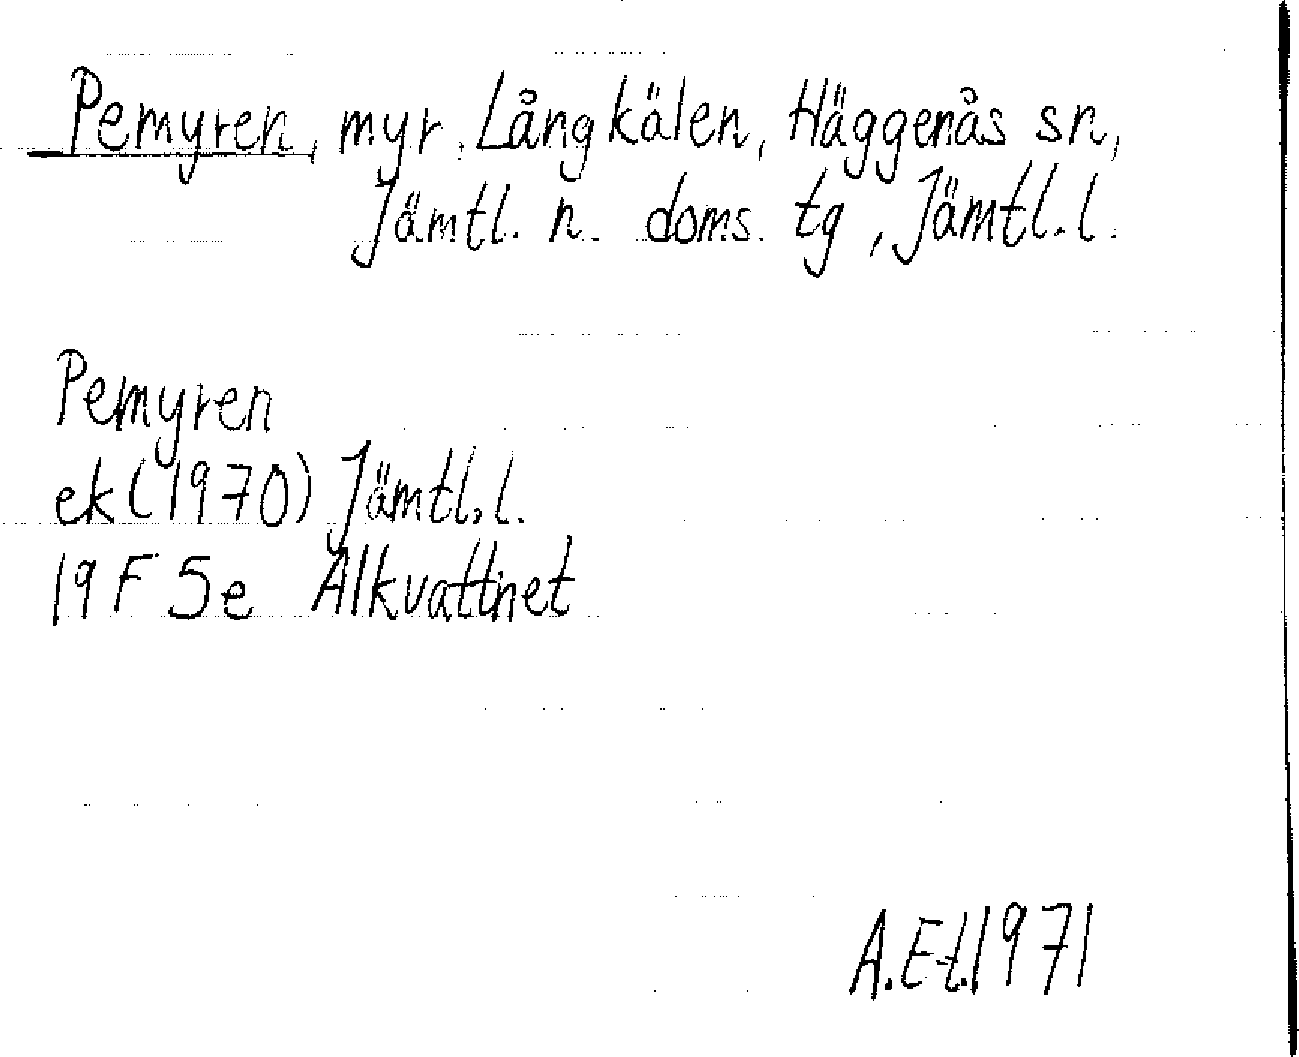 Pemyren, myr, Långkälen, Häggenås sn,
Jämtl. n. doms. tg, Jämtl. l.
Pemyren
ek (1970) Jämtl. l.
19 F 5e Alkvattnet
A. E-t. 1971